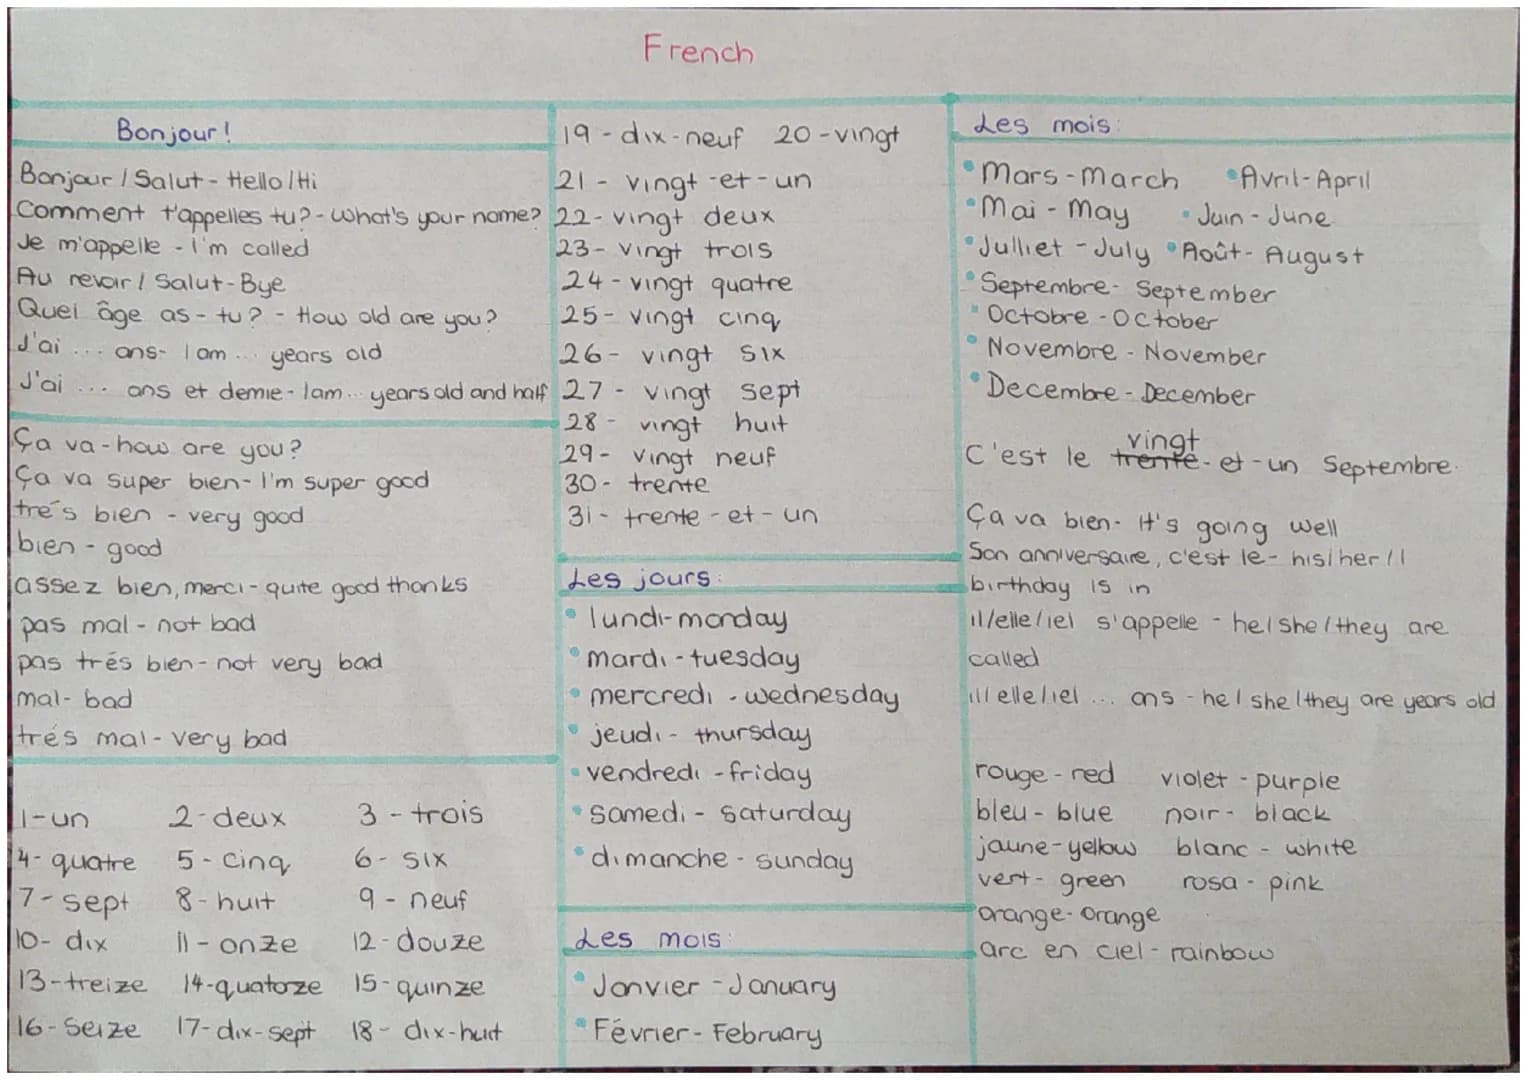 French
Bonjour!
Bonjour / Salut - Hello / Hi
Comment t'appelles tu? - What's your name?
Je m'appelle - I'm called
Au revoir / Salut - Bye
Quel âge as-tu? - How old are you?
J'ai ... ans - I am ... years old
J'ai ... ans et demie - I am ... years old and half
Ça va - how are you?
Ça va super bien - I'm super good
trés bien - very good
bien - good
assez bien, merci - quite good thanks
pas mal - not bad
pas trés bien - not very bad
mal - bad
trés mal - very bad
1 - un 2 - deux 3 - trois
4 - quatre 5 - cinq 6 - six
7 - sept 8 - huit 9 - neuf
10 - dix 11 - onze 12 - douze
13 - treize 14 - quatorze 15 - quinze
16 - seize 17 - dix-sept 18 - dix-huit
19 - dix-neuf 20 - vingt
21 - vingt-et-un
22 - vingt deux
23 - vingt trois
24 - vingt quatre
25 - vingt cinq
26 - vingt six
27 - vingt sept
28 - vingt huit
29 - vingt neuf
30 - trente
31 - trente-et-un
Les jours:
lundi - monday
mardi - tuesday
mercredi - wednesday
jeudi - thursday
vendredi - friday
samedi - saturday
dimanche - sunday
Les mois:
Janvier - January
Février - February
Les mois:
Mars - March Avril - April
Mai - May Juin - June
Julliet - July Août - August
Septembre - September
Octobre - October
Novembre - November
Decembre - December
vingt
C'est le trente-et-un Septembre.
Ça va bien - It's going well
Son anniversaire, c'est le - his/her / I
birthday is in
il/elle/iel s'appelle - he/she/they are
called
il/elle/iel ... ans - he/she/they are years old
rouge - red violet - purple
bleu - blue noir - black
jaune - yellow blanc - white
vert - green rosa - pink
orange - orange
arc en ciel - rainbow